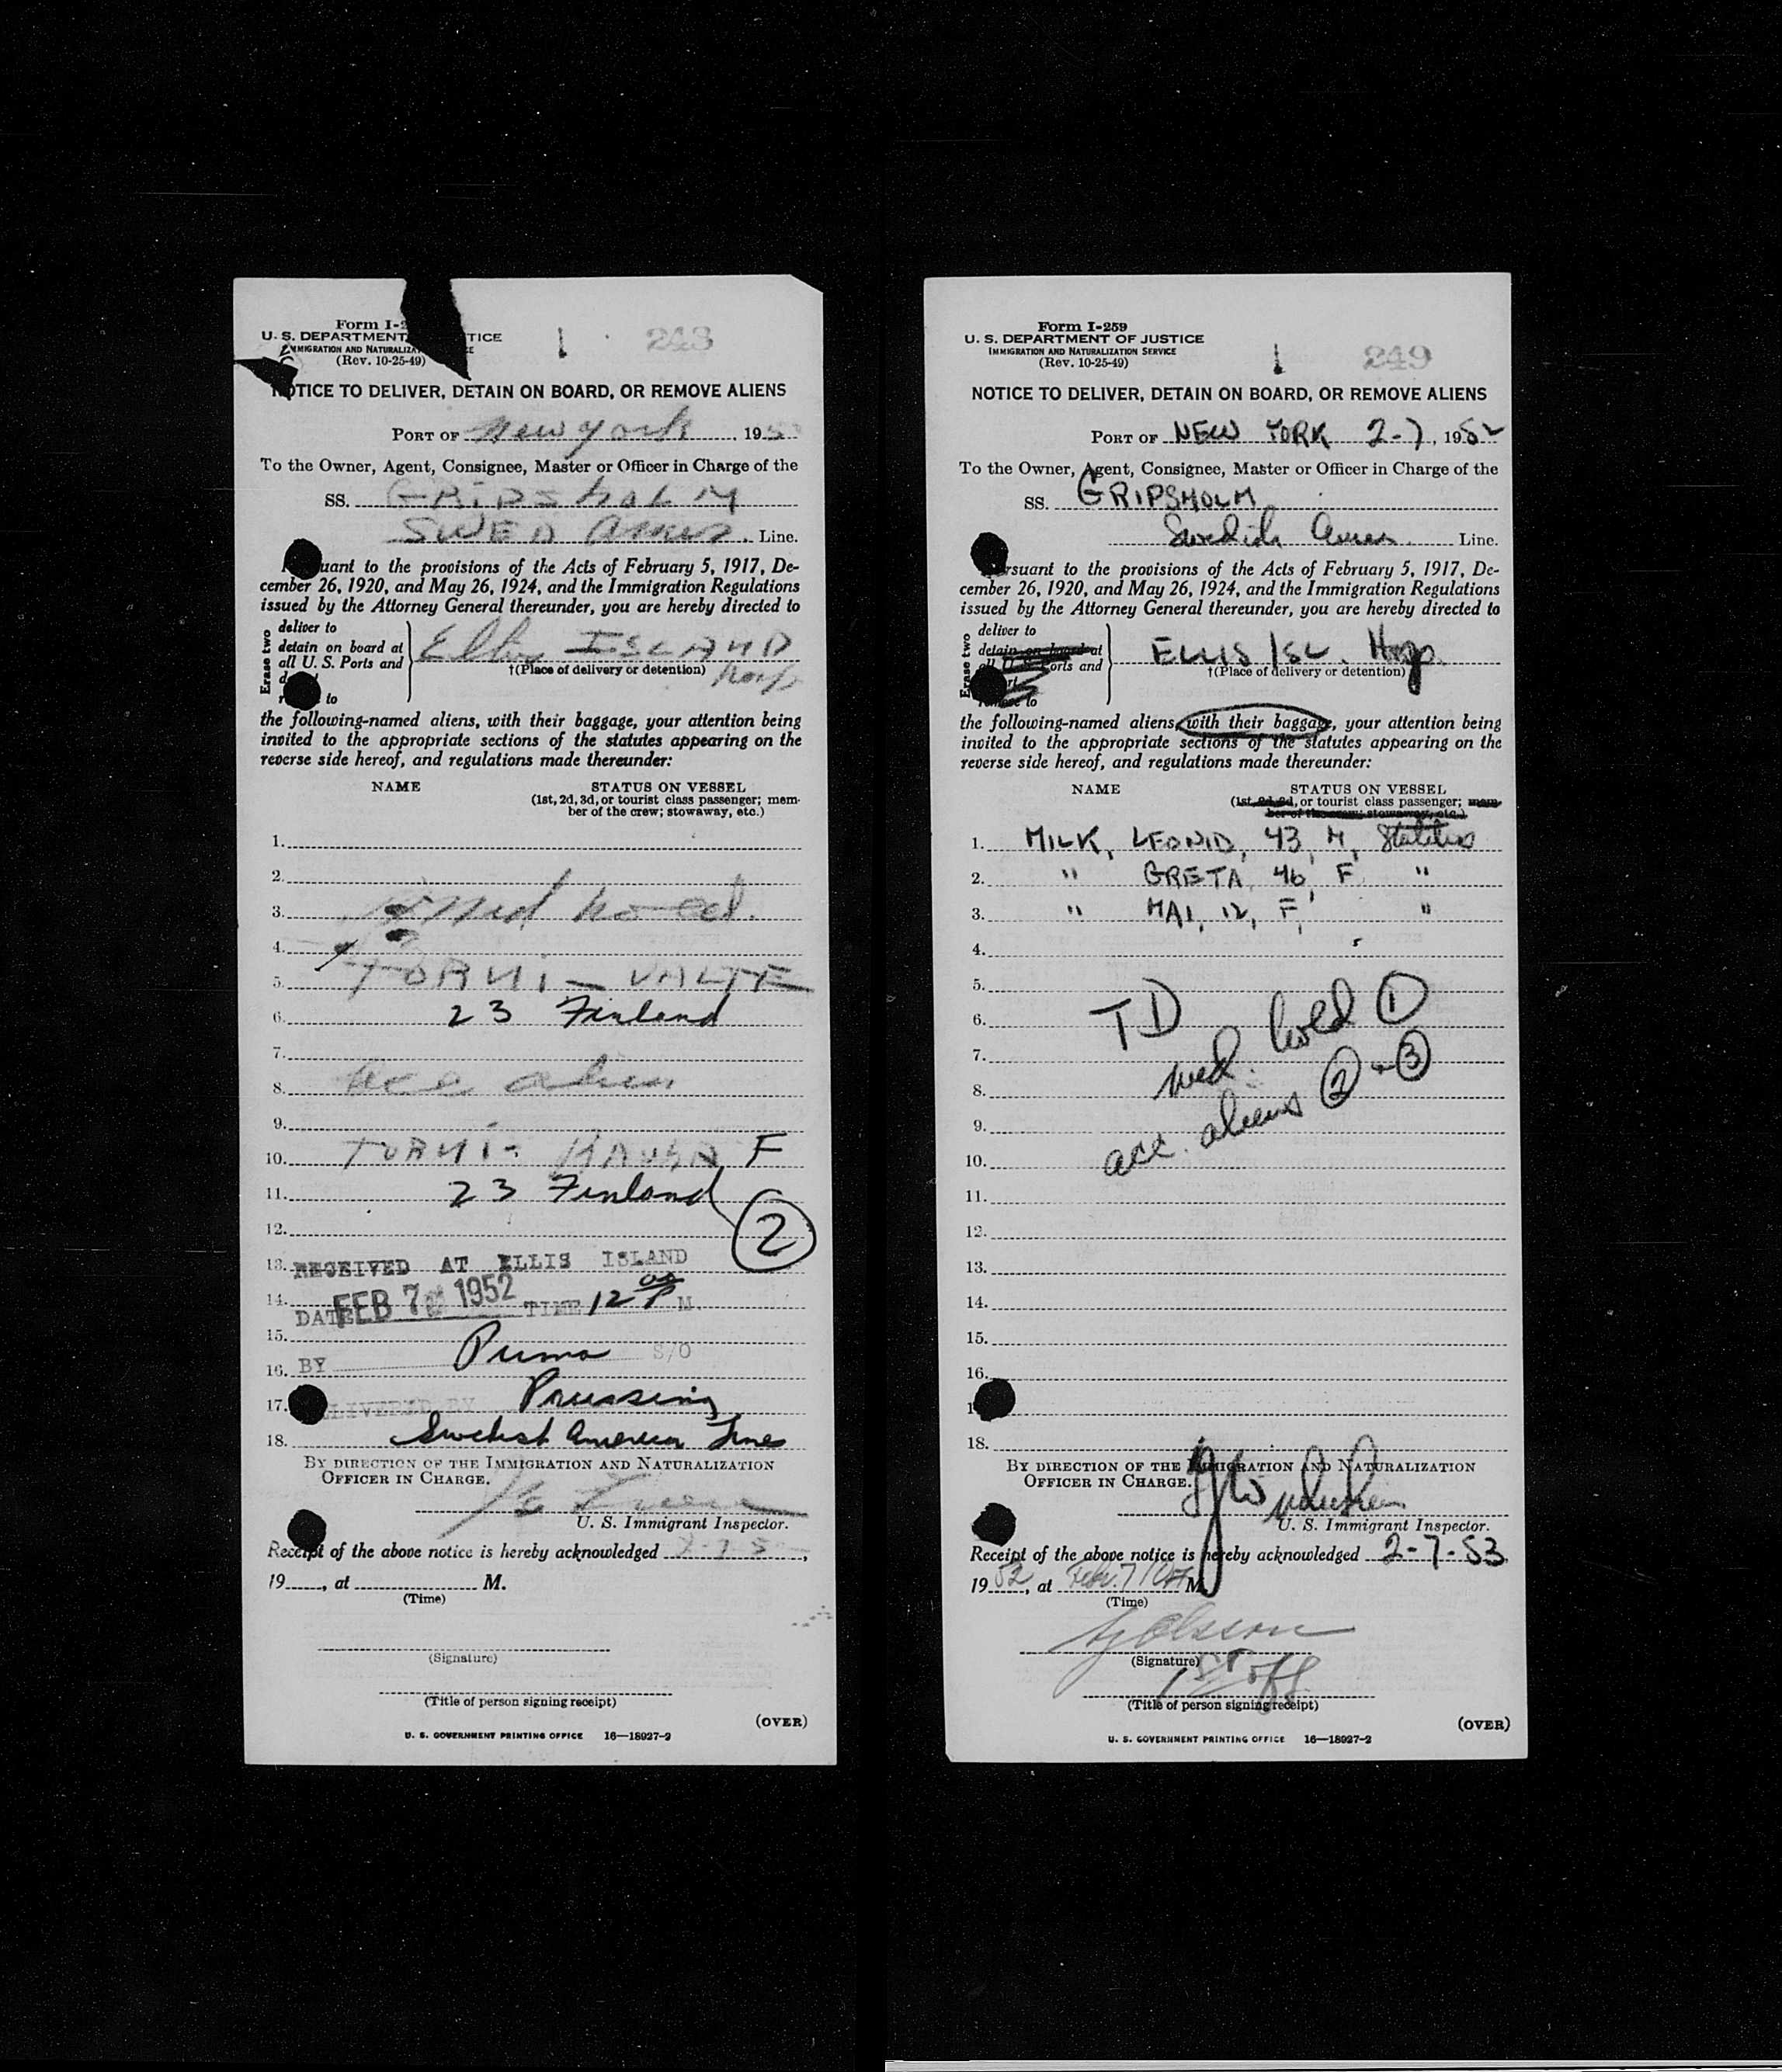 Form I-2
U. S. DEPARTMENT TICE
IMMIGRATION AND NATURALIZA CE
(Rev. 10-25-49)
1 243
NOTICE TO DELIVER, DETAIN ON BOARD, OR REMOVE ALIENS
PORT OF New York , 195
To the Owner, Agent, Consignee, Master or Officer in Charge of the
SS. GRIPSHOLM
SWED Amer. Line.
uant to the provisions of the Acts of February 5, 1917, De-
cember 26, 1920, and May 26, 1924, and the Immigration Regulations
issued by the Attorney General thereunder, you are hereby directed to
Erase two
deliver to
detain on board at
all U. S. Ports and
d
r to
Ellis ISLAND
†(Place of delivery or detention) Hosp
the following-named aliens, with their baggage, your attention being
invited to the appropriate sections of the statutes appearing on the
reverse side hereof, and regulations made thereunder:
NAME STATUS ON VESSEL
(1st, 2d, 3d, or tourist class passenger; mem-
ber of the crew; stowaway, etc.)
1.
2.
3.
4.
5. TORNI - VALTE
6. 23 Finland
7.
8. acc alien
9.
10. TORNI - F
11. 23 Finland
2
12.
13. RECEIVED AT ELLIS ISLAND
14. DATE FEB 7 1952 TIME 12 00 P M.
15.
16. BY Puma S/O
17. LIVERED BY Pruessing
18. Swedish American Line
BY DIRECTION OF THE IMMIGRATION AND NATURALIZATION
OFFICER IN CHARGE.
U. S. Immigrant Inspector.
Receipt of the above notice is hereby acknowledged 2-7-5 ,
19 , at M.
(Time)
(Signature)
(Title of person signing receipt)
(OVER)
U. S. GOVERNMENT PRINTING OFFICE 16—18927-2
Form I-259
U. S. DEPARTMENT OF JUSTICE
IMMIGRATION AND NATURALIZATION SERVICE
(Rev. 10-25-49)
1 249
NOTICE TO DELIVER, DETAIN ON BOARD, OR REMOVE ALIENS
PORT OF NEW YORK 2-7, 1952
To the Owner, Agent, Consignee, Master or Officer in Charge of the
SS. GRIPSHOLM
Swedish Amer. Line.
rsuant to the provisions of the Acts of February 5, 1917, De-
cember 26, 1920, and May 26, 1924, and the Immigration Regulations
issued by the Attorney General thereunder, you are hereby directed to
Erase two
deliver to
detain on board at
all U. S. Ports and
rt
remove to
ELLIS ISL. Hosp.
†(Place of delivery or detention)
the following-named aliens, with their baggage, your attention being
invited to the appropriate sections of the statutes appearing on the
reverse side hereof, and regulations made thereunder:
NAME STATUS ON VESSEL
(1st, 2d, 3d, or tourist class passenger; mem-
ber of the crew; stowaway, etc.)
1. MILK, LEONID, 43, M, Stateless
2. " GRETA, 46, F "
3. " MAI, 12, F, "
4.
5.
6. TD
7. med. hold 1
8. acc. aliens 2 - 3
9.
10.
11.
12.
13.
14.
15.
16.
1
18.
BY DIRECTION OF THE IMMIGRATION AND NATURALIZATION
OFFICER IN CHARGE.
U. S. Immigrant Inspector.
Receipt of the above notice is hereby acknowledged 2-7-53
1952, at Febr. 7 M.
(Time)
Olsson
(Signature)
1st off
(Title of person signing receipt)
(OVER)
U. S. GOVERNMENT PRINTING OFFICE 16—18927-2